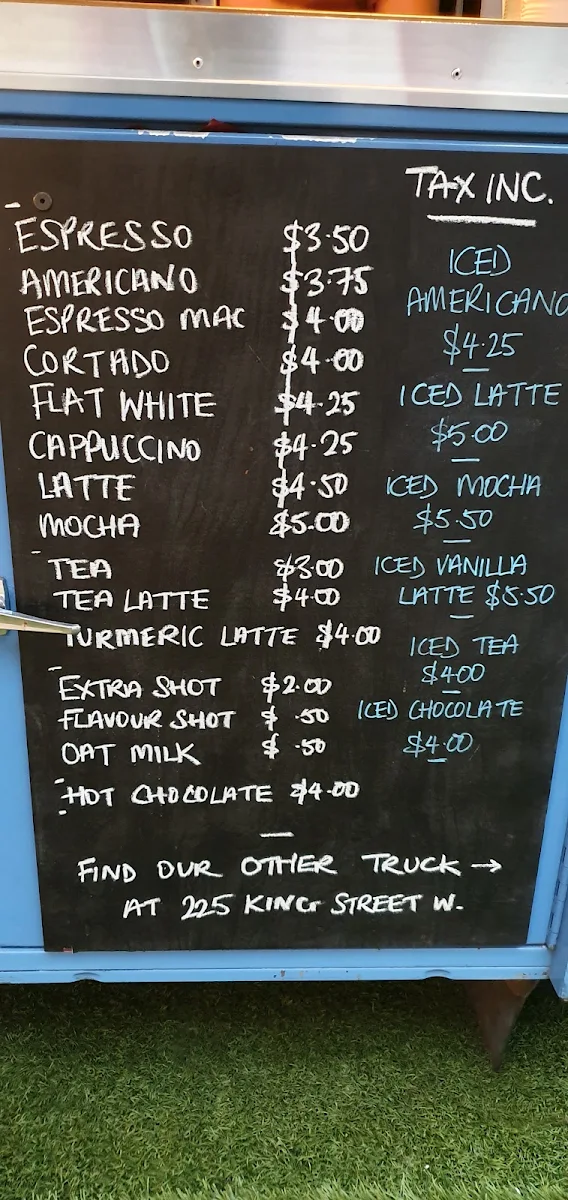 TAX INC.
ESPRESSO $3.50
AMERICANO $3.75
ESPRESSO MAC $4.00
CORTADO $4.00
FLAT WHITE $4.25
CAPPUCCINO $4.25
LATTE $4.50
MOCHA $5.00
TEA $3.00
TEA LATTE $4.00
TURMERIC LATTE $4.00
EXTRA SHOT $2.00
FLAVOUR SHOT $ .50
OAT MILK $ .50
HOT CHOCOLATE $4.00
ICED
AMERICANO
$4.25
ICED LATTE
$5.00
ICED MOCHA
$5.50
ICED VANILLA
LATTE $5.50
ICED TEA
$4.00
ICED CHOCOLATE
$4.00
FIND OUR OTHER TRUCK →
AT 225 KING STREET W.